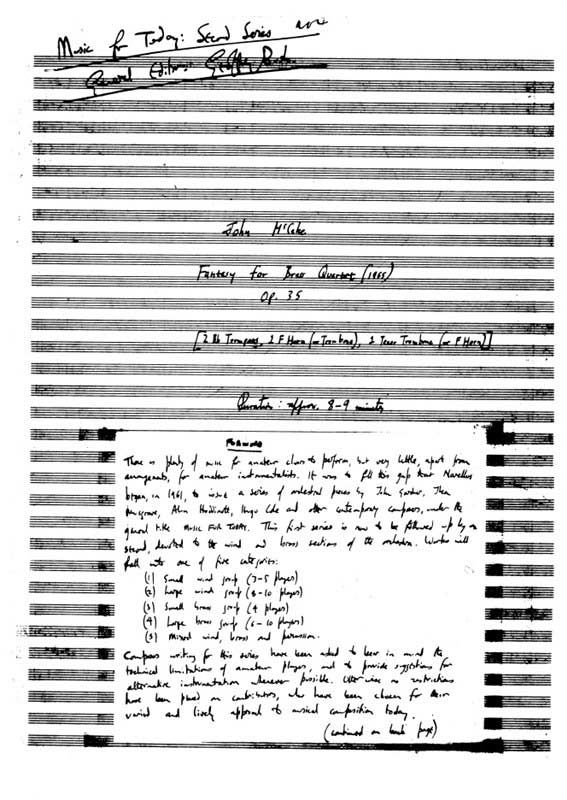 Music for Today: Second Series
General Editor: Geoffrey
John McCabe
Fantasy for Brass Quartet (1965)
Op. 35
[2 Bb Trumpets, 1 F Horn (or Trombone), 1 Tenor Trombone (or F Horn)]
Duration: approx. 8-9 minutes
FOREWORD
There is plenty of music for amateur choirs to perform, but very little, apart from
arrangements, for amateur instrumentalists. It was to fill this gap that Novellos
began, in 1961, to issue a series of orchestral pieces by John Gardner, Thea
Musgrave, Alun Hoddinott, Hugo Cole and other contemporary composers, under the
general title Music For Today. This first series is now to be followed up by a
second, devoted to the wind and brass sections of the orchestra. Works will
fall into one of five categories:
(1) Small wind group (3-5 players)
(2) Large wind group (6-10 players)
(3) Small brass group (4 players)
(4) Large brass group (6-10 players)
(5) Mixed wind, brass and percussion.
Composers writing for this series have been asked to bear in mind the
technical limitations of amateur players, and to provide suggestions for
alternative instrumentation whenever possible. Otherwise no restrictions
have been placed on contributors, who have been chosen for their
varied and lively approach to musical composition today.
(continued on back page)